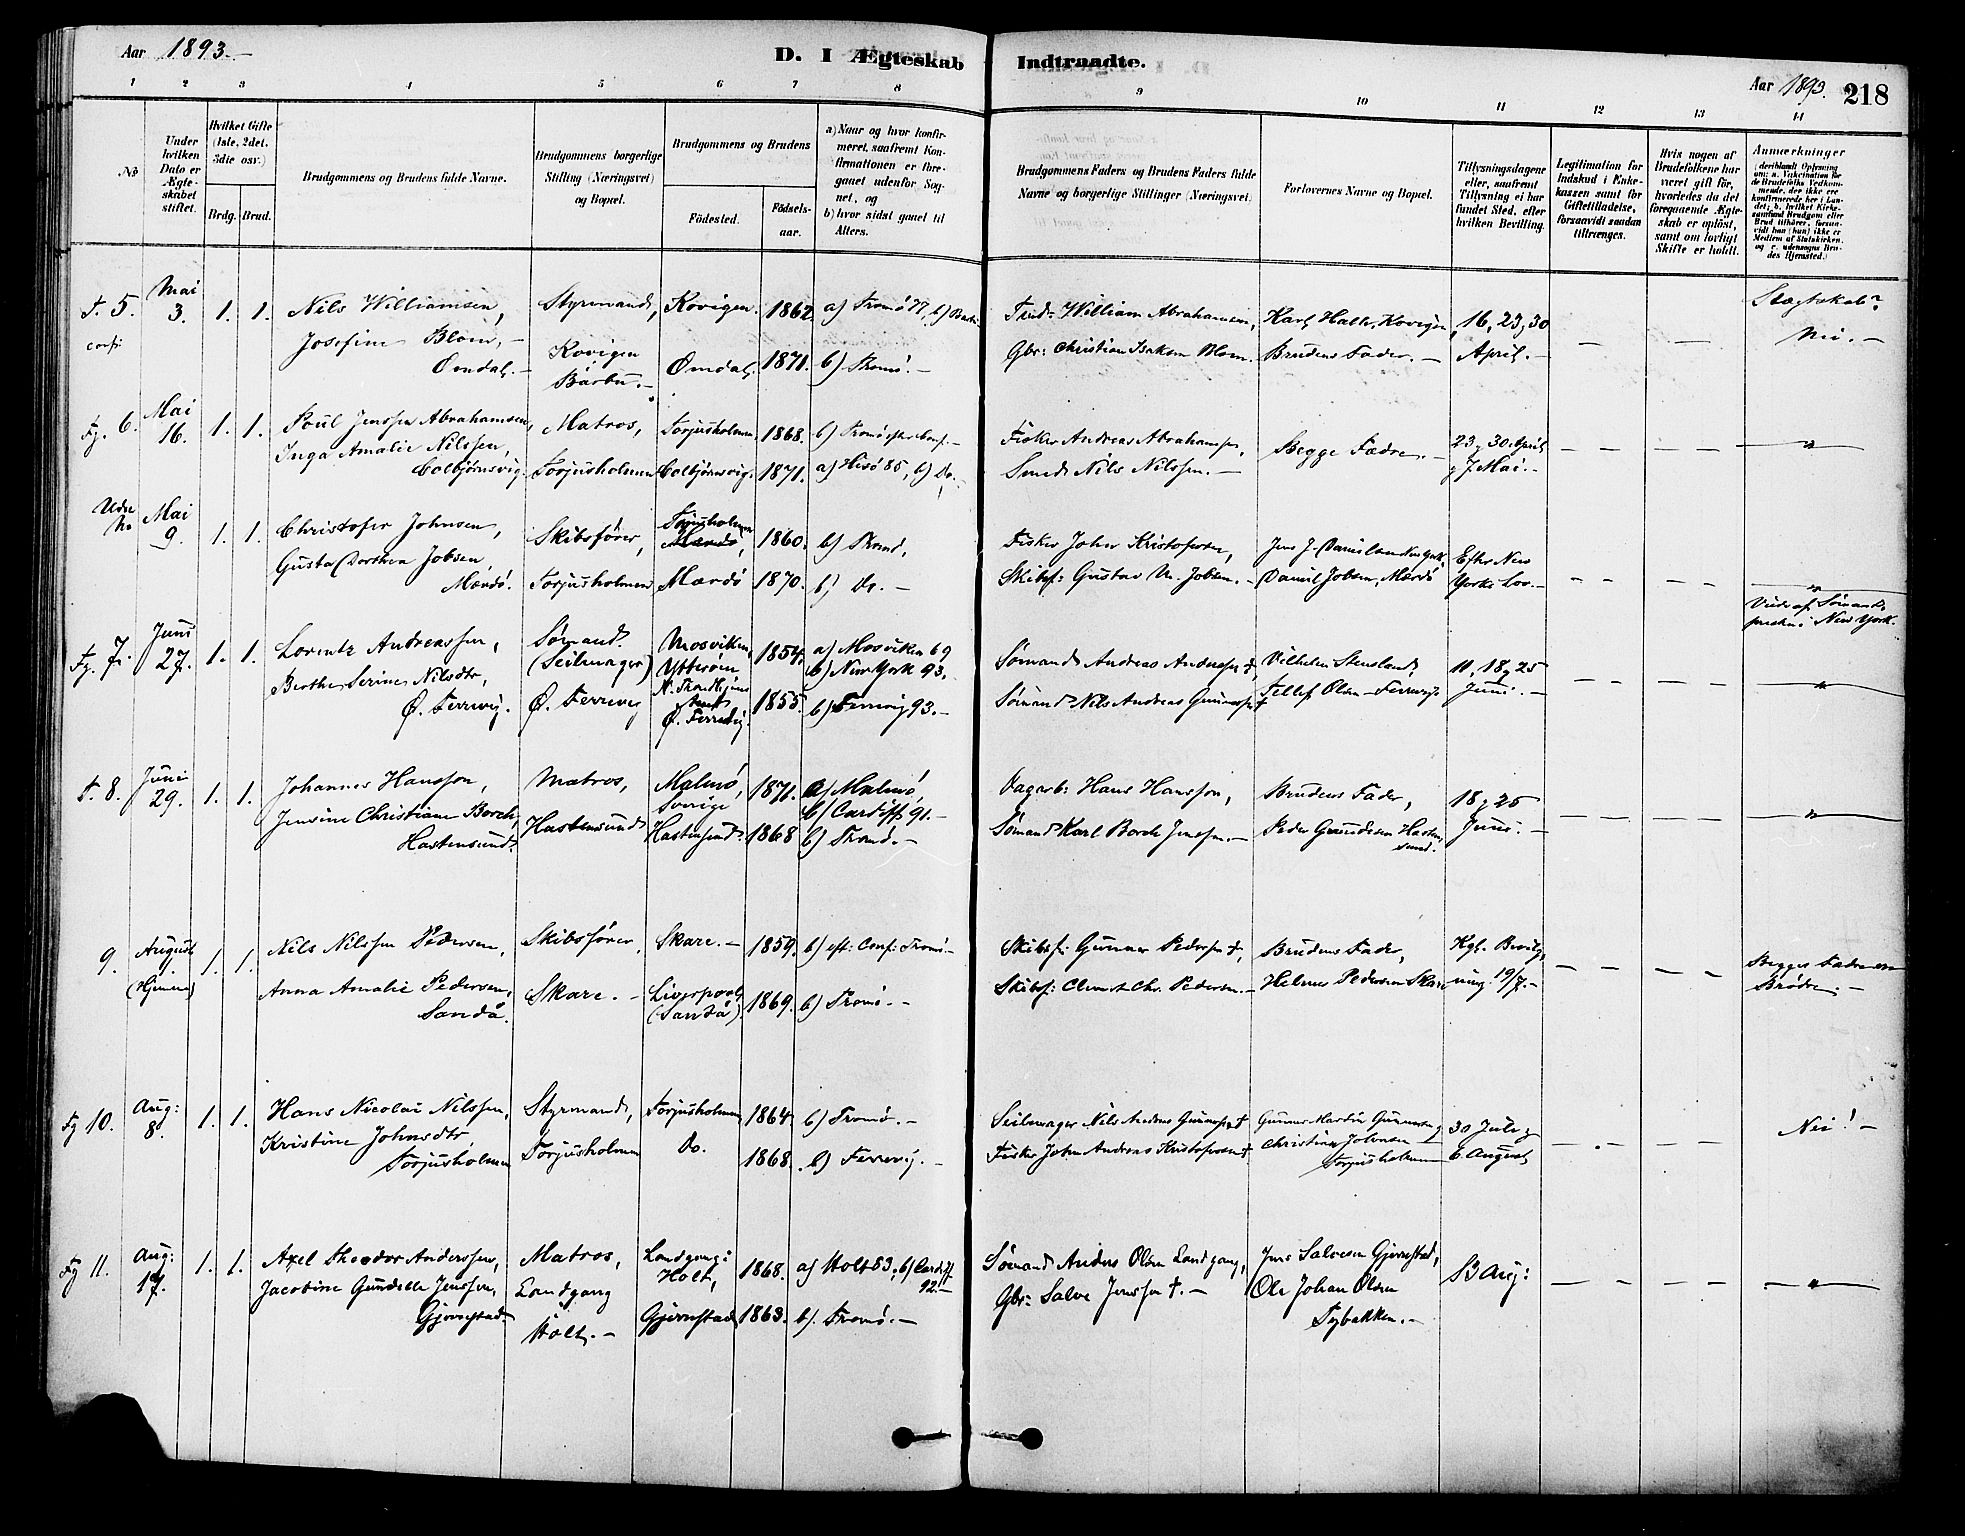 Aar 1893.–
D. I Ægteskab Indtraadte.
Aar 1893. 218
1 2 3 4 5 6 7 8 9 10 11 12 13 14
No
Under hvilken Dato er Ægteskabet stiftet.
Hvilket Gifte (1ste, 2det, 3die osv.)
Brdg. Brud.
Brudgommens og Brudens fulde Navne.
Brudgommens borgerlige Stilling (Næringsvei) og Bopæl.
Brudgommens og Brudens
Fødested. Fødselsaar.
a) Naar og hvor konfirmeret, saafremt Konfirmationen er foregaaet udenfor Sognet, og
b) hvor sidst gaaet til Alters.
Brudgommens Faders og Brudens Faders fulde Navne og borgerlige Stillinger (Næringsvei).
Forlovernes Navne og Bopæl.
Tillysningsdagene eller, saafremt Tillysning ei har fundet Sted, efter hvilken Bevilling.
Legitimation for Indskud i Enkekassen samt for Giftetilladelse, forsaavidt saadan tiltrænges.
Hvis nogen af Brudefolkene har været gift før, hvorledes da det foregaaende Ægteskab er opløst, samt om lovligt Skifte er holdt.
Anmærkninger
T. 5. Mai 3. 1. 1. Nils Williamsen, Styrmand, Kovigen. 1862. a) Tromö 77, b)
Josefine Blom,– Kovigen Barbu.– Omdal. 1871. b) Tromö.–
Omdal.–
William Abrahamsen, Karl Halto, Kovigen, 16, 23, 30 April.–
Gbr: Christian Isaksen Blom. Brudens Fader.–
Slægtskab? Nei.–
Fg. 6. Mai 16. 1. 1. Poul Jensen Abrahamsen, Matros, Torjusholmen 1868. b) Tromö efter Conf.–
Inga Amalie Nilssen, Colbjørnsvig. Torjusholmen Colbjørnsvig. 1871. a) Hisö 85, b) Do.–
Fisker Andreas Abrahamsen, Begge Fædre.– 23, 30 April
Smed Nils Nilssen.– 7 Mai.–
Mai 9. 1. 1. Christofer Johnsen, Skibsfører, Torjusholmen Mærdö, 1860. b) Tromö.
Gusta Dorthea Jobsen, Mærdö. Torjusholmen Mærdö 1870. b) Do.–
Fisker John Kristofersen, Jens J. Danielsen New York, Efter New
Skibsf: Gustav M. Jobsen.– Daniel Jobsen, Mærdö Yorks Lov.–
Viede af Sømandspresten i New York.
Fg. 7. Juni 27. 1. 1. Lorentz Andreassen, Sømand (Seilmager) Mosviken, Ytterøen N. Trondhjems Amt 1854. a) Mosviken 69
b) New York 93.
Berthe Serine Nilsdtr, Ø. Færrevig. Ø. Færrevig Ø. Færrevig. 1855. b) Færrevig 93.–
Sømand Andreas Andersen †, Vilhelm Stensland, 11, 18 g 25
Sømand Nils Andreas Gunnersen † Tellef Olsen – Færrevig. Juni.–
T. 8. Juni 29. 1. 1. Johannes Hansson, Matros, Malmö, Sverige 1871. a) Malmö,
b) Cardiff 91.–
Jensine Christiane Borch, Hastensund. Hastensund Hastensund. 1868 b) Tromö.–
Dagarb: Hans Hansson, Brudens Fader, 18 g 25
Sømand Karl Borch Jensen.– Peder Gundersen Hastensund. Juni.–
9. August 1. (Hjemme) 1. 1. Nils Nilssen Pedersen, Skibsfører, Skare.– 1859. b) eft: Conf: Tromö.–
Anna Amalie Pedersen, Sandå. Skare.– Liverpool (Sandå). 1869. b) Tromö.–
Skibsf: Gunner Pedersen †, Brudens Fader, Kgl. Bevilgning 19/7.–
Skibsf: Chr. Pedersen.– Helmer Pedersen Skare
Begges Fædre ere Brødre.–
Fg 10. Aug: 8. 1. 1. Hans Nicolai Nilssen, Styrmand, Torjusholmen, 1864. b) Tromö.–
Kristine Johnsdtr, Torjusholmen Torjusholmen Do. 1868. b) Færrevig.–
Seilmager Nils Andreas Gunnersen † Gunner Martin Gunnersen g 30 Juli g
Fisker John Andreas Kristofersen † Christian Johnsen – Torjusholmen 6. August
Nei!–
Fg 11. Aug: 17. 1. 1. Axel Theodor Anderssen, Matros, Landgang i Holt, 1868. a) Holt 83, b) Cardiff 92.–
Jacobine Gundelle Jenssen, Gjervestad.– Landgang Holt.– Gjervestad 1863. b). Tromö.–
Sømand Anders Olsen Landgang, Jens Salvesen Gjervestad, 13 Aug:
Gbr: Salve Jenssen †.– Ole Johan Olsen Tybakken.–